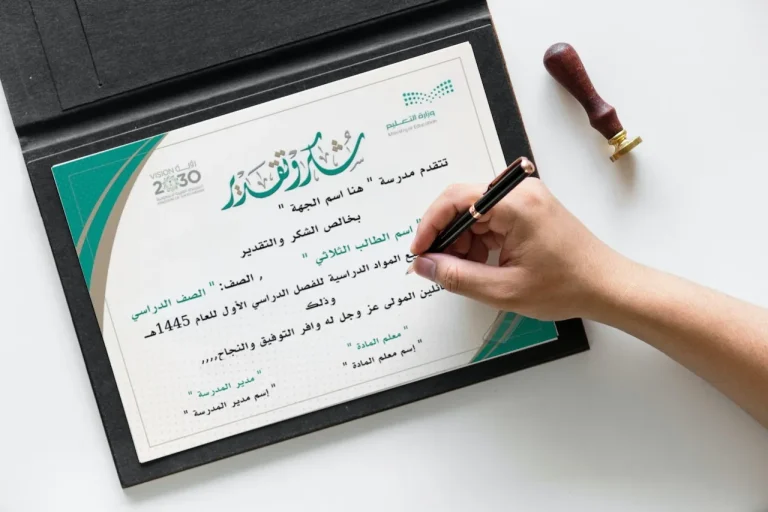 وزارة التعليم
Ministry of Education
VISION رؤية
2030
شكر وتقدير
تتقدم مدرسة " هنا اسم الجهة "
بخالص الشكر والتقدير
" اسم الطالب الثلاثي "
، الصف: " الصف الدراسي "
المواد الدراسية للفصل الدراسي الأول للعام 1445هـ
وذلك
المولى عز وجل له وافر التوفيق والنجاح,,,,
" معلم المادة "
" إسم معلم المادة "
" مدير المدرسة "
" إسم مدير المدرسة "